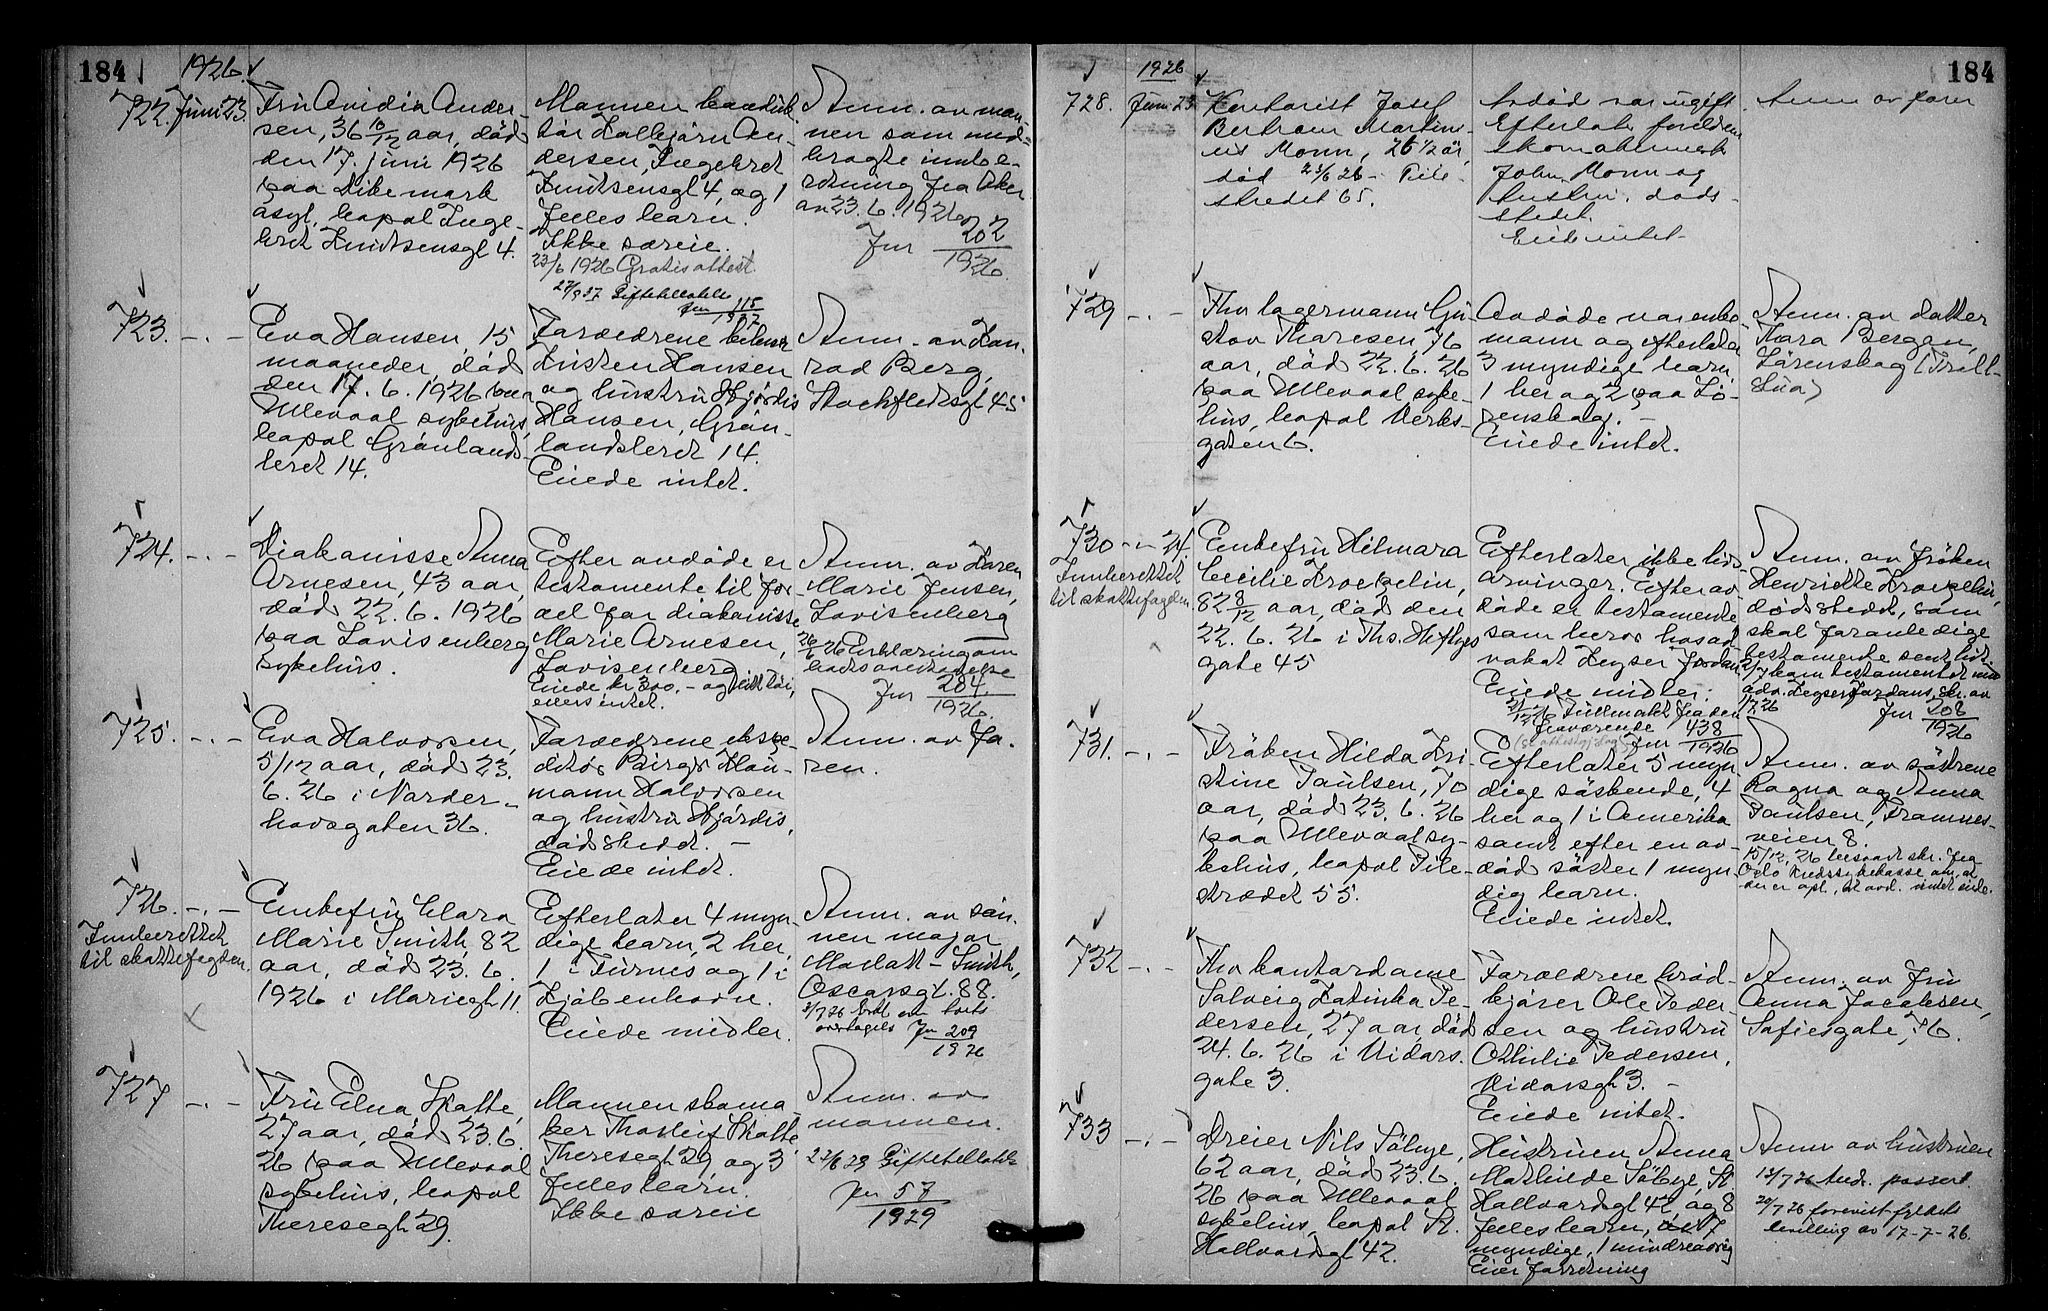 184
1926.
722. Juni 23.
Fru Avidia Ander-
sen, 36 10/12 aar, død
den 17. juni 1926
paa Dikemark
asyl, bopæl Inge-
bret Knudsensgt 4.
Mannen
Andersen, Ingebret
Knudsensgt 4, og 1
fælles barn.
Ikke særeie.
23/6 1926 Gratisattest.
27/9 37 Giftetillatelse
Jnr 115/1937
Anm. av man-
nen som med-
bragte innbe-
retning fra Aker
av 23. 6. 1926
Jnr 202/1926.
723. -.-
Eva Hansen, 15
maaneder, død
den 17. 6. 1926 paa
Ullevaal sykehus,
bopæl Grønlands-
leret 14.
Forældrene
Kristen Hansen
og hustru Hjørdis
Hansen, Grøn-
landsleret 14.
Eiede intet.
Anm. av Kon-
rad Berg,
Stockfletsgt 45
724. -.-
Diakonisse Anna
Arnesen, 43 aar,
død 22. 6. 1926
paa Lovisenberg
sykehus.
Efter avdøde er
testamente til for-
del for diakonisse
Marie Arnesen,
Lovisenberg
Eiede kr 300,- og litt tøi,
ellers intet.
Anm. av Karen
Marie Jensen,
Lovisenberg
26/6 26 Erklæring om
boets overtagelse
Jnr 204/1926.
725. -.-
Eva Halvorsen,
5/12 aar, død 23.
6. 26 i Norder-
hovsgaten 36.
Forældrene ekspe-
ditør Birger Hau-
mann Halvorsen
og hustru Hjørdis,
dødstedet. -
Eiede intet.
Anm. av fa-
ren.
726. -.-
Innberettet
til skattefogden.
Enkefru Clara
Marie Smith, 82
aar, død 23. 6.
1926 i Mariegt 11.
Efterlater 4 myn-
dige barn, 2 her,
1 i Furnes og 1 i
Kjøbenhavn.
Eiede midler.
Anm. av søn-
nen major
Smith,
Oscarsgt. 88.
boets
overtagelse Jnr 209/1926
727 -.-
Fru Elna Skatte,
27 aar, død 23. 6.
26 paa Ullevaal
sykehus, bopæl
Theresegt 29.
Mannen skoma-
ker Thorleif Skatte
Theresegt 29, og 3
fælles barn.
Ikke særeie
Anm. av
mannen.
Giftetillatelse
Jnr 57/1929
184
1926
728. Juni 23.
Kontorist Josef
Bertram Martini-
us Monn, 26 1/2 år,
død 21/6 26 - Pile-
stredet 65.
Avdød var ugift
Efterlater foreldrene
skomakermester
John Monn og
hustru, døds-
stedet.
Eide intet
Anm av faren
729 -.-
Fhv lagermann Gu-
stav Tharesen, 76
aar, død 22. 6. 26
paa Ullevaal syke-
hus, bopæl Verks-
gaten 6.
Avdøde var enke-
mann og efterlater
3 myndige barn,
1 her og 2 paa Lø-
renskog. -
Eiede intet.
Anm. av datter
Thara Bergen,
Lørenskog
730 -.- 24.
Innberettet
til skattefogden
Enkefru Hilmara
Cecilie Kroepelin,
82 8/12 aar, død den
22. 6. 26 i Ths. Heftyes
gate 45
Efterlater ikke livs-
arvinger. Efter av-
døde er testamente
som beror hos ad-
vokat Keyser Jordan
Eiede midler.
Fullmakt fra den
fraværende
Jnr 438/1926
Anm. av frøken
Henriette Kroepelin,
dødstedet, som
skal foranledige
testamente sent hit.
2/7 kom testamentet med
adv. Keyser Jordans skr. av
1/7 26
Jnr 208/1926
731. -.-
Frøken Hilda Kri-
stine Paulsen, 70
aar, død 23. 6. 26
paa Ullevaal sy-
kehus, bopæl Pile-
strædet 55.
Efterlater 5 myn-
dige søskende, 4
her og 1 i Amerika
samt efter en av-
død søster 1 myn-
dig barn.
Eiede intet.
Anm. av søstrene
Ragna og Anna
Paulsen, Framnes-
veien 8.
15/12 26 besvart skr. fra
Oslo Kredssykekasse om, at
der er opl., at avd. intet eide.
732 -.-
Fhv kontordame
Solveig Katinka Pe-
dersen, 27 aar, død
24. 6. 26 i Vidars-
gate 3.
Forældrene brød-
kjører Ole Peder-
sen og hustru
Othilie Pedersen,
Vidarsgt 3. -
Eiede intet.
Anm. av fru
Anna Jacobsen,
Sofiesgate 76.
733 -.-
Dreier Nils Sølnye,
62 aar, død 23. 6.
26 paa Ullevaal
sykehus, bopæl St.
Hallvardsgt 42.
Hustruen Anna
Mathilde Sølnye, St
Hallvardsgt 42, og 8
fælles barn, 7
myndige, 1 mindreaarig
Eier forretning
Anm av hustruen
12/7 26 Andr. passert
20/7 26 forevist
bevilling av 17-7-26.